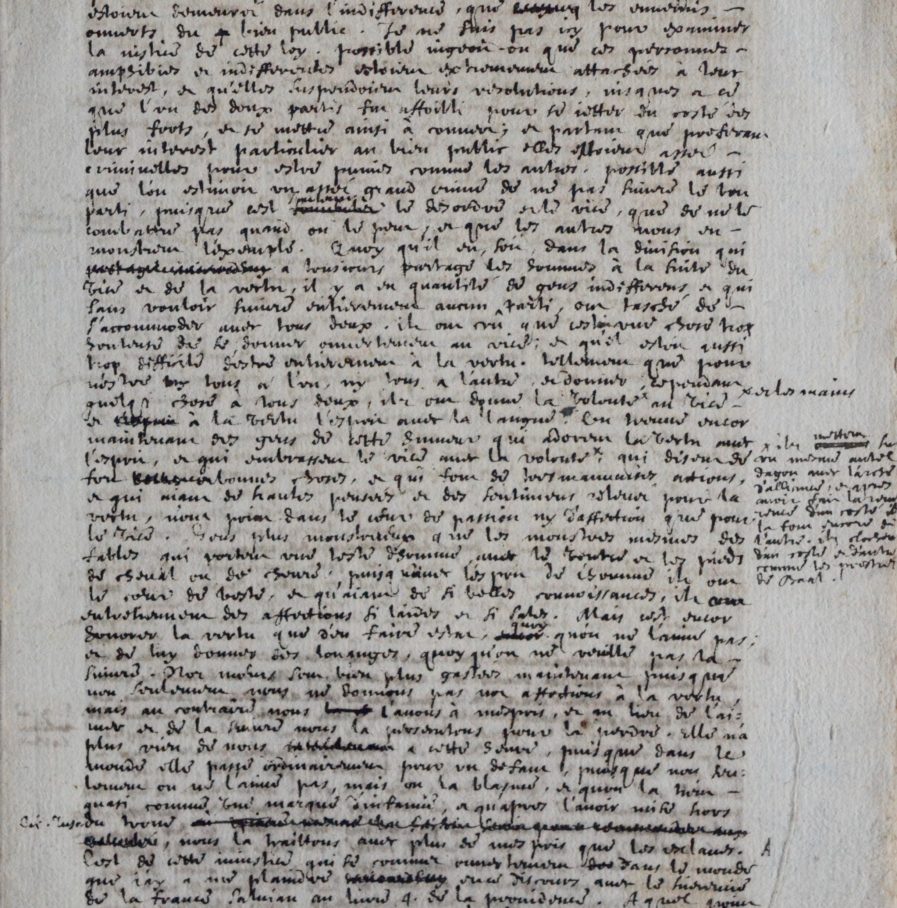 estoient demeurez dans l'indifference, que les ennemis
ouverts du bien public. Je ne suis pas icy pour examiner
la iustice de cette loy. possible iugeoit-on que ces personnes
amphibies et indifferentes estoient extremement attachées à leur
interest, et qu'elles suspendoient leurs resolutions, iusques a ce
que l'un des deux partis fut affoibli pour se ietter du costé des
plus forts, et se mettre ainsi à couvert; et partant que preferant
leur interest particulier au bien public elles estoient assez
criminelles pour estre punies comme les autres. possible aussi
que l'on estimoit un assez grand crime de ne pas suivre le bon
parti, puisque c'est le desordre et le vice, que de ne le
combattre pas quand on le peut, et que les autres nous en
monstrent l'exemple. Quoy qu'il en soit, dans la division qui
a tousiours partagé les hommes à la suite du
vice et de la vertu, il y a eu quantité de gens indifferens et qui
sans vouloir suivre entierement aucun parti, ont tasché de
s'accommoder avec tous deux. ils ont cru que c'estoit une chose trop
honteuse de se donner ouvertement au vice; et qu'il estoit aussi
trop difficile d'estre entierement à la vertu. tellement que pour
n'estre ny tous a l'un, ny tous a l'autre, et donner cependant
quelq chose à tous deux, ils ont donné la volonté au vice
x et les mains
et à la vertu l'esprit avec la langue. On trouve encor
maintenant des gens de cette humeur qui adorent la vertu avec
l'esprit, et qui embrassent le vice avec la volonté x; qui disent de
fort bonnes choses, et qui font de tres mauvaises actions,
et qui aiant de hautes pensées et des sentimens relevez pour la
vertu, n'ont point dans le cœur de passion ny d'affection que pour
le vice. Gens plus monstrueux que les monstres mesmes des
fables qui portent une teste d'homme avec le ventre et les pieds
de cheval ou de chevre, puisqu'avec l'esprit de l'homme ils ont
le cœur de beste, et qu'aiant de si belles connoissances, ils
entretiennent des affections si laides et si sales. Mais c'est encor
honorer la vertu que d'en faire estat, quoy qu'on ne l'aime pas;
et de luy donner des louanges, quoy qu'on ne veuille pas la
suivre. Nos mœurs sont bien plus gastées maintenant puisque
non seulement nous ne donnons pas nos affections à la vertu,
mais au contraire nous l'avons à mespris, et au lieu de l'ai-
mer et de la suivre nous la persecutons pour la perdre. Elle n'a
plus rien de nous a cette heure, puisque dans le
monde elle passe ordinairement pour un defaut, puisque non seu-
lement on ne l'aime pas, mais on la blasme, et qu'on la tient
quasi comme une marque d'infamie, et qu'apres l'avoir mise hors
du trone
, nous la traittons avec plus de mespris que les esclaves.
C'est de cette iniustice qui se commet ouvertement dans le monde
A
que i'ay a me plaindre en ce discours avec le Hieremie
de la France Salvian au livre 4. de la providence. A quel point
x ils mettent sur
un mesme autel
dagon avec l'arche
d'alliance, et apres
avoir fait la reve
rence d'un costé
la font encore de
l'autre. ils clochent
d'un costé et d'autre
comme les prestres
de Baal.